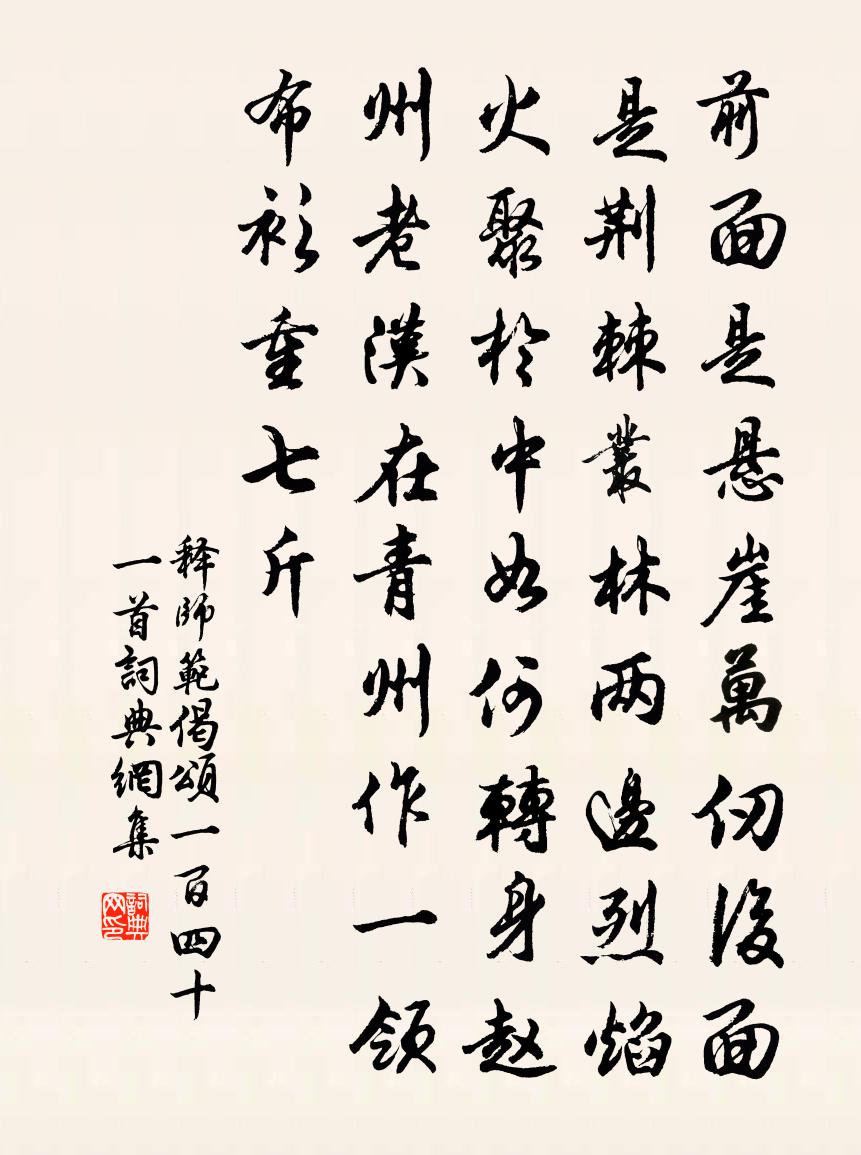 前面是悬崖萬仞後面
是荆棘叢林两邊烈焰
火聚於中如何轉身赵
州老漢在青州作一領
布衫重七斤
释師範偈頌一百四十
一首詞典網集
詞典网印